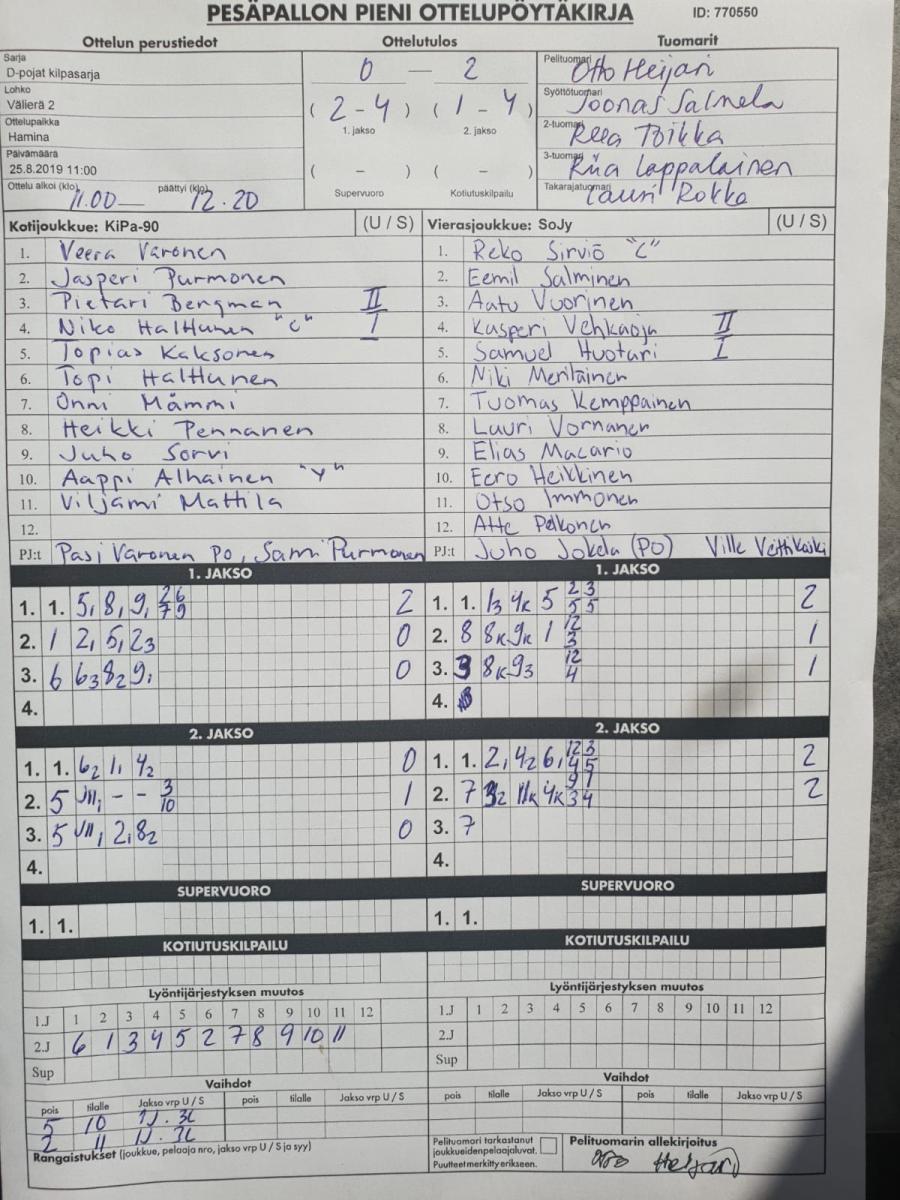 PESÄPALLON PIENI OTTELUPÖYTÄKIRJA ID: 770550
Ottelun perustiedot Ottelutulos Tuomarit
Sarja
D-pojat kilpasarja
Lohko
Välierä 2
Ottelupaikka
Hamina
Päivämäärä
25.8.2019 11:00
Ottelu alkoi (klo) 11.00 päättyi (klo) 12.20
0 — 2
(2-4) (1-4)
1. jakso 2. jakso
( - ) ( - )
Supervuoro Kotiutuskilpailu
Pelituomari Otto Heijari
Syöttötuomari Joonas Salmela
2-tuomari Reea Toikka
3-tuomari Riia Lappalainen
Takarajatuomari Lauri Rokka
Kotijoukkue: KiPa-90 (U / S)
1. Veera Varonen
2. Jasperi Purmonen
3. Pietari Bergman II
4. Niko Halttunen "C" I
5. Topias Kaksonen
6. Topi Halttunen
7. Onni Mämmi
8. Heikki Pennanen
9. Juho Sorvi
10. Aappi Alhainen "Y"
11. Viljami Mattila
12.
PJ:t Pasi Varonen PO, Sami Purmonen
Vierasjoukkue: SoJy (U / S)
1. Reko Sirviö "C"
2. Eemil Salminen
3. Aatu Vuorinen
4. Kasperi Vehkaoja II
5. Samuel Huotari I
6. Niki Meriläinen
7. Tuomas Kemppainen
8. Lauri Vornanen
9. Elias Macario
10. Eero Heikkinen
11. Otso Immonen
12. Atte Pelkonen
PJ:t Juho Jokela (PO) Ville
1. JAKSO
1. 1. 5, 8, 9, 26 79 2
2. 1 2, 5, 23 0
3. 6 63 82 9, 0
4.
1. JAKSO
1. 1. 13 4K 5 23 55 2
2. 8 8K 9K 1 12 3 1
3. 3 8K 93 12 4 1
4.
2. JAKSO
1. 1. 62 1, 42 0
2. 5 - - 3 10 1
3. 5 2, 82 0
4.
2. JAKSO
1. 1. 2, 42 6, 12 3 4 5 2
2. 7 11K 4K 9 1 3 4 2
3. 7
4.
SUPERVUORO
1. 1.
SUPERVUORO
1. 1.
KOTIUTUSKILPAILU
KOTIUTUSKILPAILU
Lyöntijärjestyksen muutos
1.J 1 2 3 4 5 6 7 8 9 10 11 12
2.J 6 1 3 4 5 2 7 8 9 10 11
Sup
Lyöntijärjestyksen muutos
1.J 1 2 3 4 5 6 7 8 9 10 11 12
2.J
Sup
Vaihdot
pois tilalle Jakso vrp U / S pois tilalle Jakso vrp U / S
5 10 1J. 3L
2 11 1J. 3L
Vaihdot
pois tilalle Jakso vrp U / S pois tilalle Jakso vrp U / S
Rangaistukset (joukkue, pelaaja nro, jakso vrp U / S ja syy)
Pelituomari tarkastanut
joukkueidenpelaajaluvat.
Puutteet merkitty erikseen.
Pelituomarin allekirjoitus
Otto Heijari